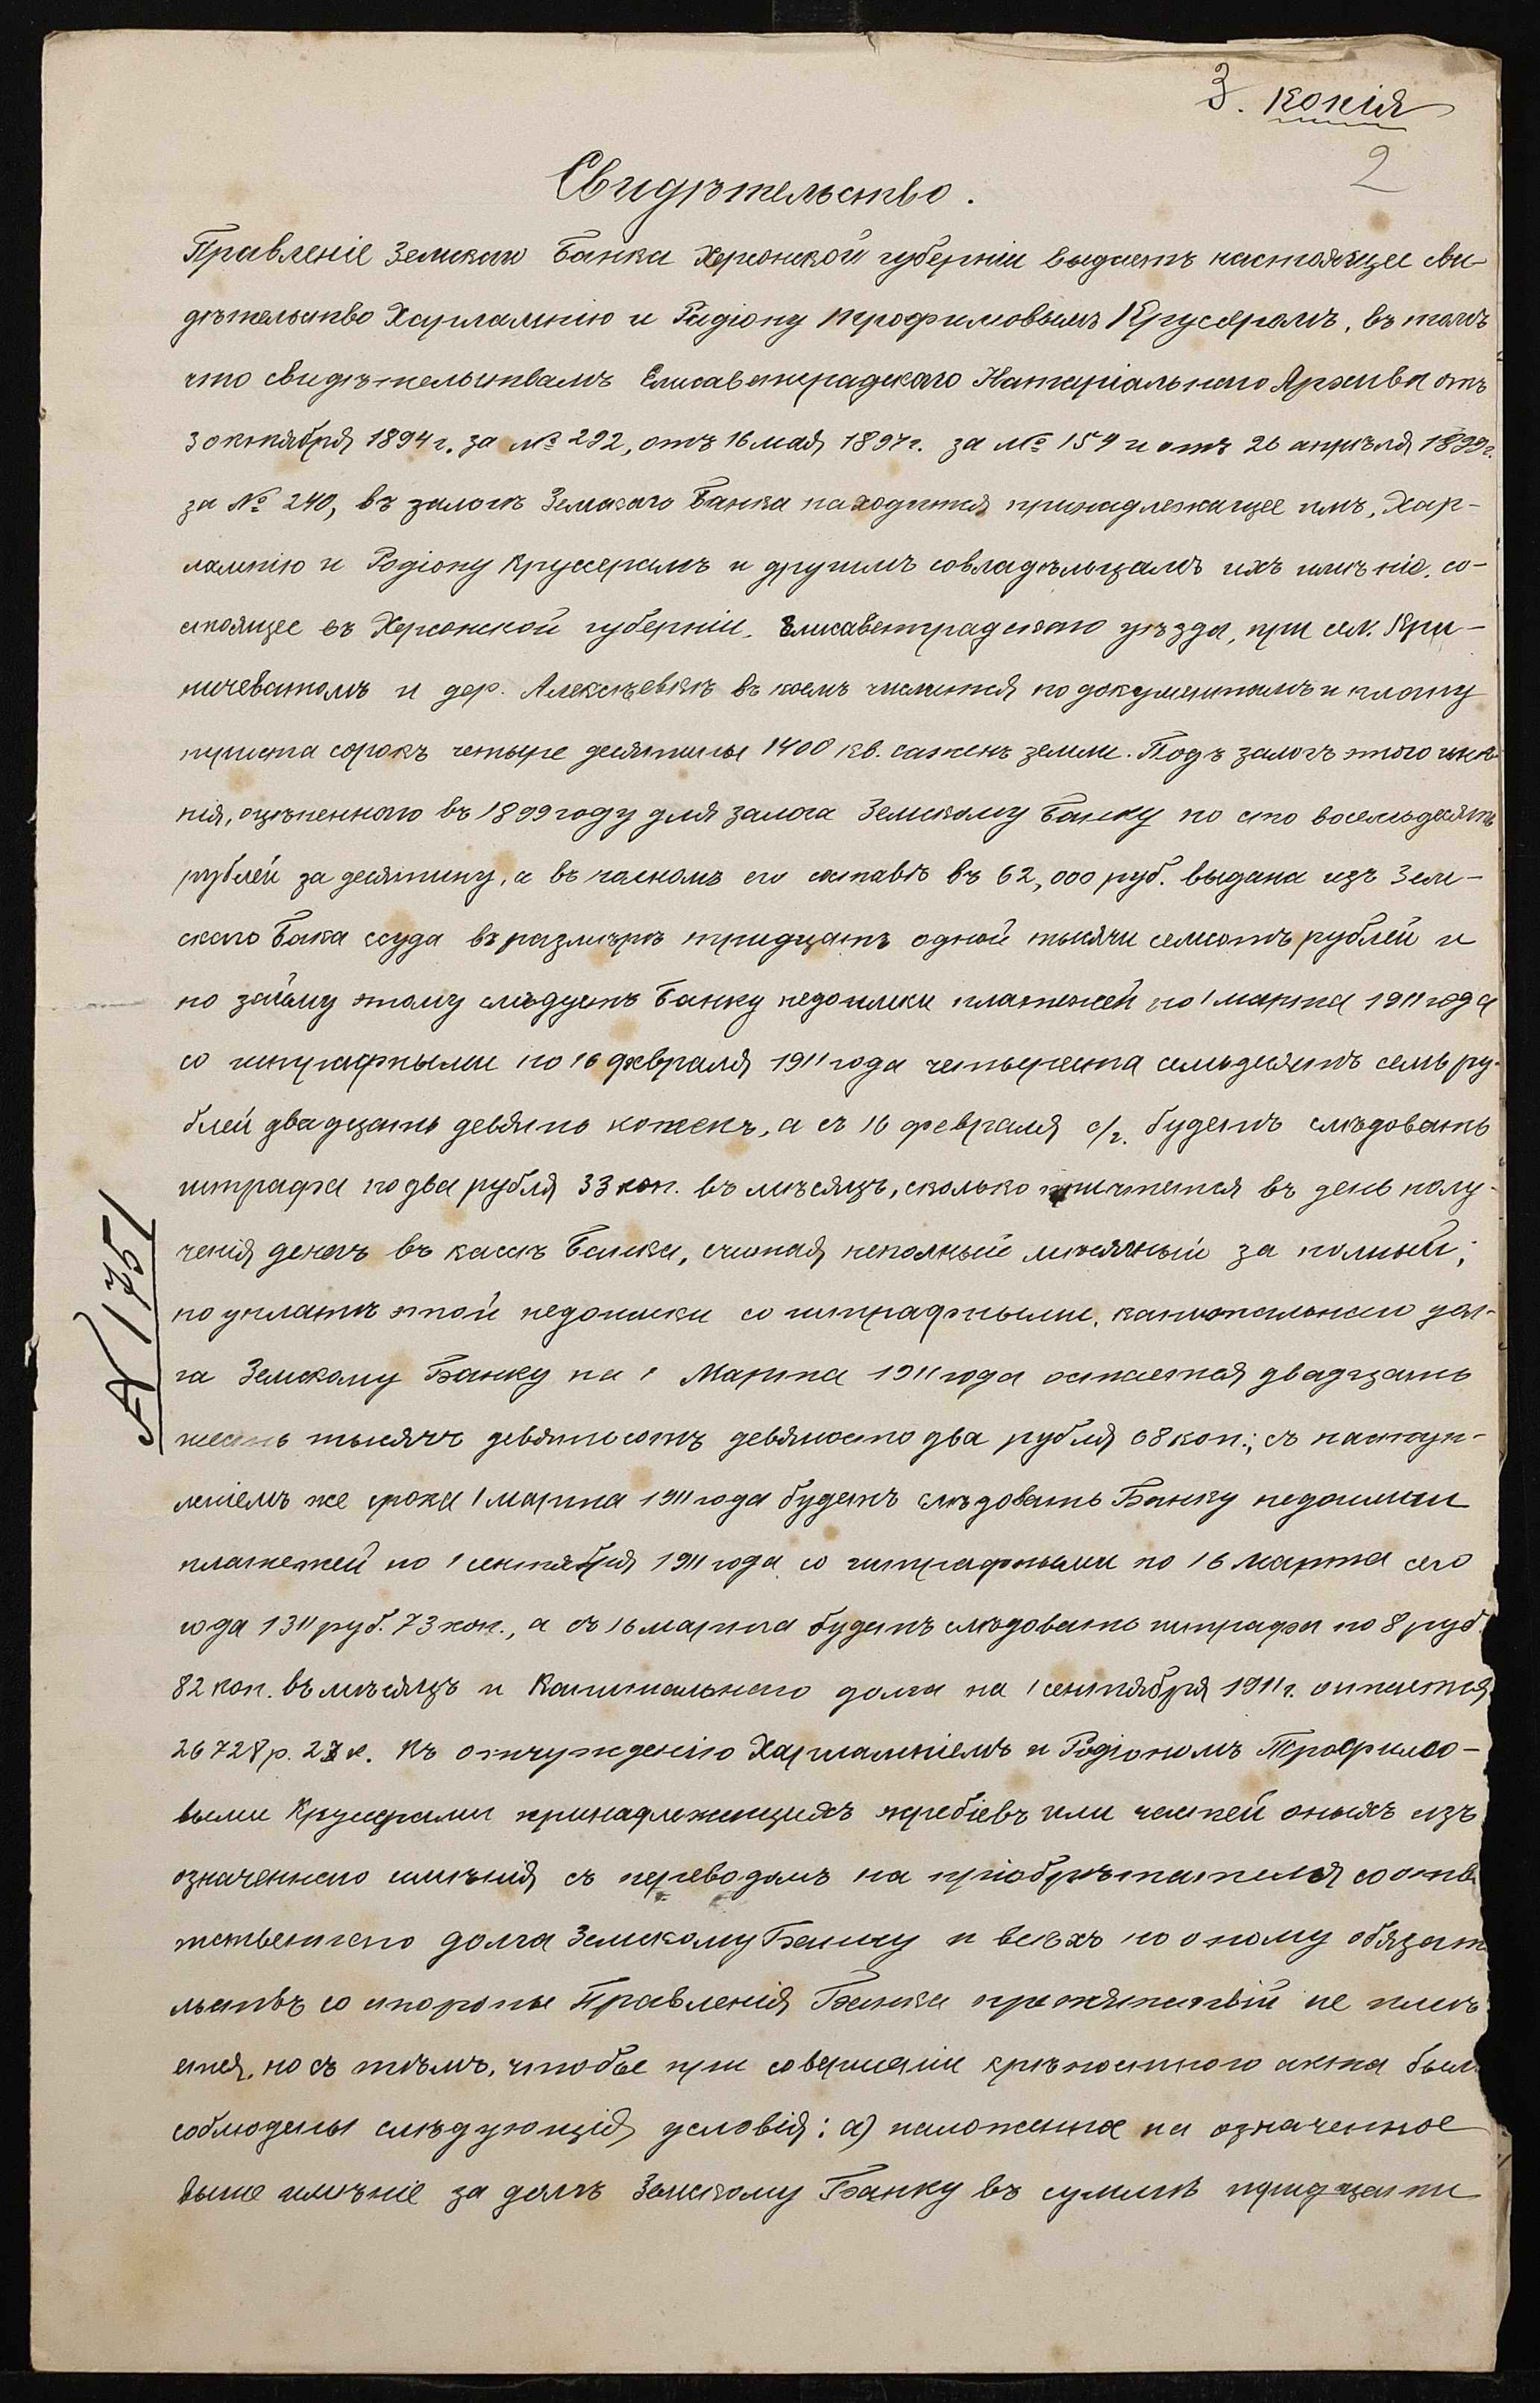 3. копія
2
Свидѣтельство.
Правленіе Земскаго Банка Херсонской губерніи выдаетъ настоящее сви-
дѣтельство Харлампію и Радіону Трофимовымъ Крусерамъ, въ томъ
что свидѣтельствамъ Елисаветградскаго Натаріальнаго Архива отъ
3 октября 1894 г. за № 292, отъ 16 мая 1897 г. за № 154 и отъ 26 апрѣля 1899 г.
за № 240, въ залогѣ Земскаго Банка находится принадлежащее имъ, Хар-
лампію и Родіону Крусерамъ и другимъ совладѣльцамъ ихъ имѣніе, со-
стоящее въ Херсонской губерніи, Елисаветградскаго уѣзда, при сел. Кри-
ничеватомъ и дер. Алексѣевкѣ въ коемъ числится по документамъ и плану
триста сорокъ четыре десятины 1400 кв. сажень земли. Подъ залогъ этого имѣ-
нія, оцѣненнаго въ 1899 году для залога Земскому Банку по сто восемьдесятъ
рублей за десятину, а въ полномъ его составѣ въ 62,000 руб. выдана изъ Зем-
скаго Бака ссуда въ размѣрѣ тридцать одной тысячи семисотъ рублей и
по займу этому слѣдуетъ Банку недоимки платежей по 1 марта 1911 года
со штрафными по 16 февраля 1911 года четыреста семьдесятъ семь ру-
блей двадцать девять копеекъ, а съ 16 февраля с/г. будетъ слѣдовать
штрафа по два рубля 33 коп. въ мѣсяцъ, сколько причтется въ день полу-
ченія денегъ въ кассѣ Банка, считая неполный мѣсячный за полный;
по уплатѣ этой недоимки со штрафными, капитальнаго дол-
га Земскому Банку на 1 Марта 1911 года остается двадцать
шесть тысячъ девятьсотъ девяносто два рубля 68 коп.; съ наступ-
леніемъ же срока 1 марта 1911 года будетъ слѣдовать Банку недоимки
платежей по 1 сентября 1911 года со штрафными по 16 марта сего
года 1311 руб. 73 коп., а съ 16 марта будетъ слѣдовать штрафа по 8 руб.
82 коп. въ мѣсяцъ и Капитальнаго долга на 1 сентября 1911 г. остается
26728 р. 27 к. Къ отчужденію Харлампіемъ и Родіономъ Трофимо-
выми Крусерами принадлежащихъ жребіевъ или частей оныхъ изъ
означеннаго имѣнія съ переводомъ на пріобрѣтателя соотвѣ
тственнаго долга Земскому Банку и всѣхъ по оному обязат
льствъ со стороны Правленія Банка препятствій не имѣ
ется, но съ тѣмъ, чтобы при совершеніи крѣпостного акта был
соблюдены слѣдующія условія: а) наложенное на означенное
выше имѣніе за долгъ Земскому Банку въ суммѣ тридцати
№ 1751